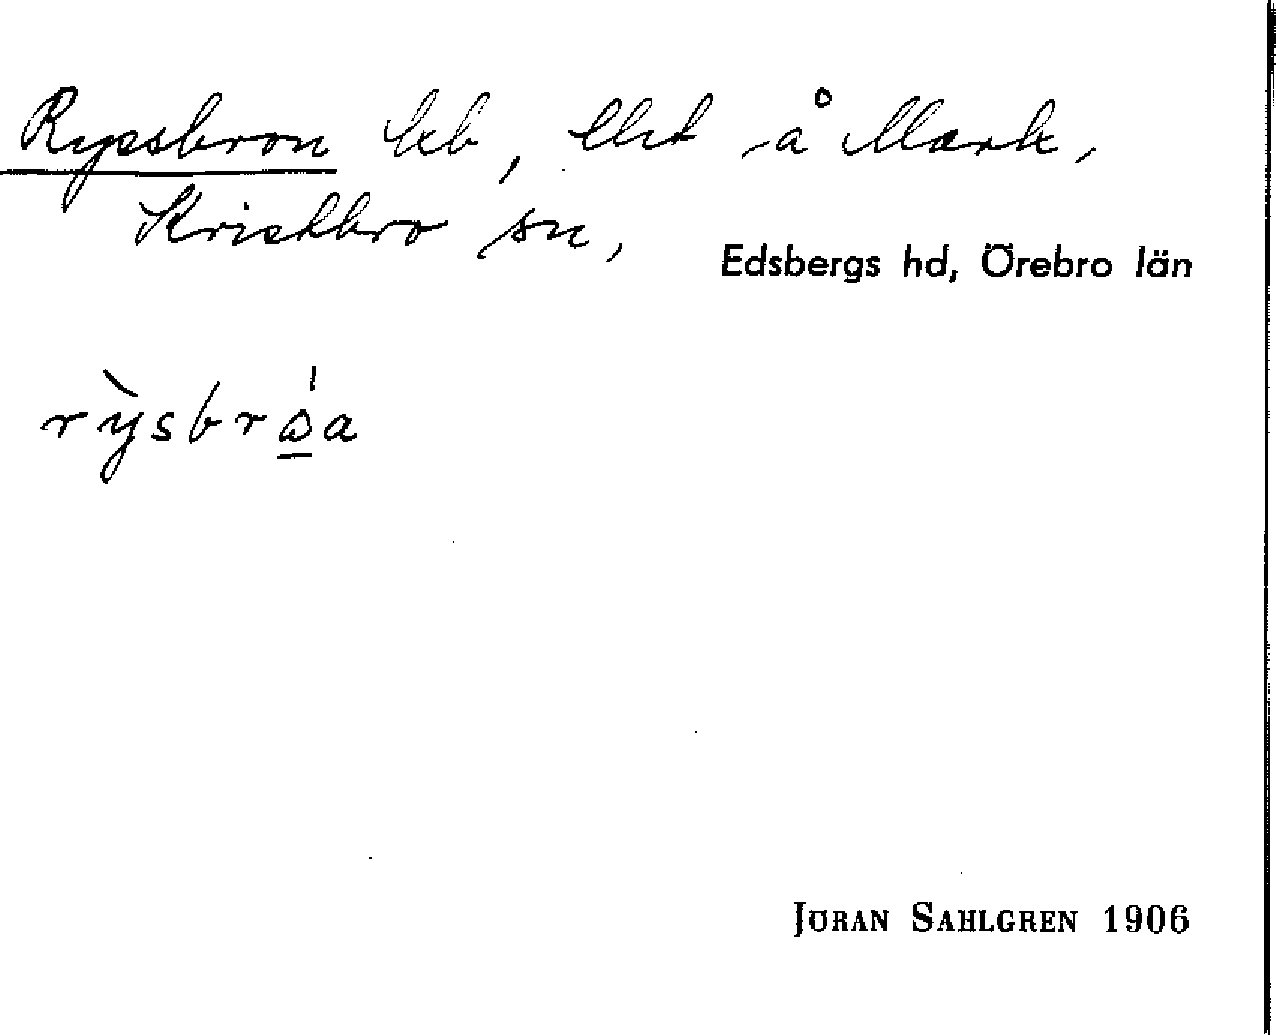 Ryssbron beb, lht å Mark,
Kvistbro sn,
Edsbergs hd, Örebro län
rỳsbrώ̲a
JÖRAN SAHLGREN 1906